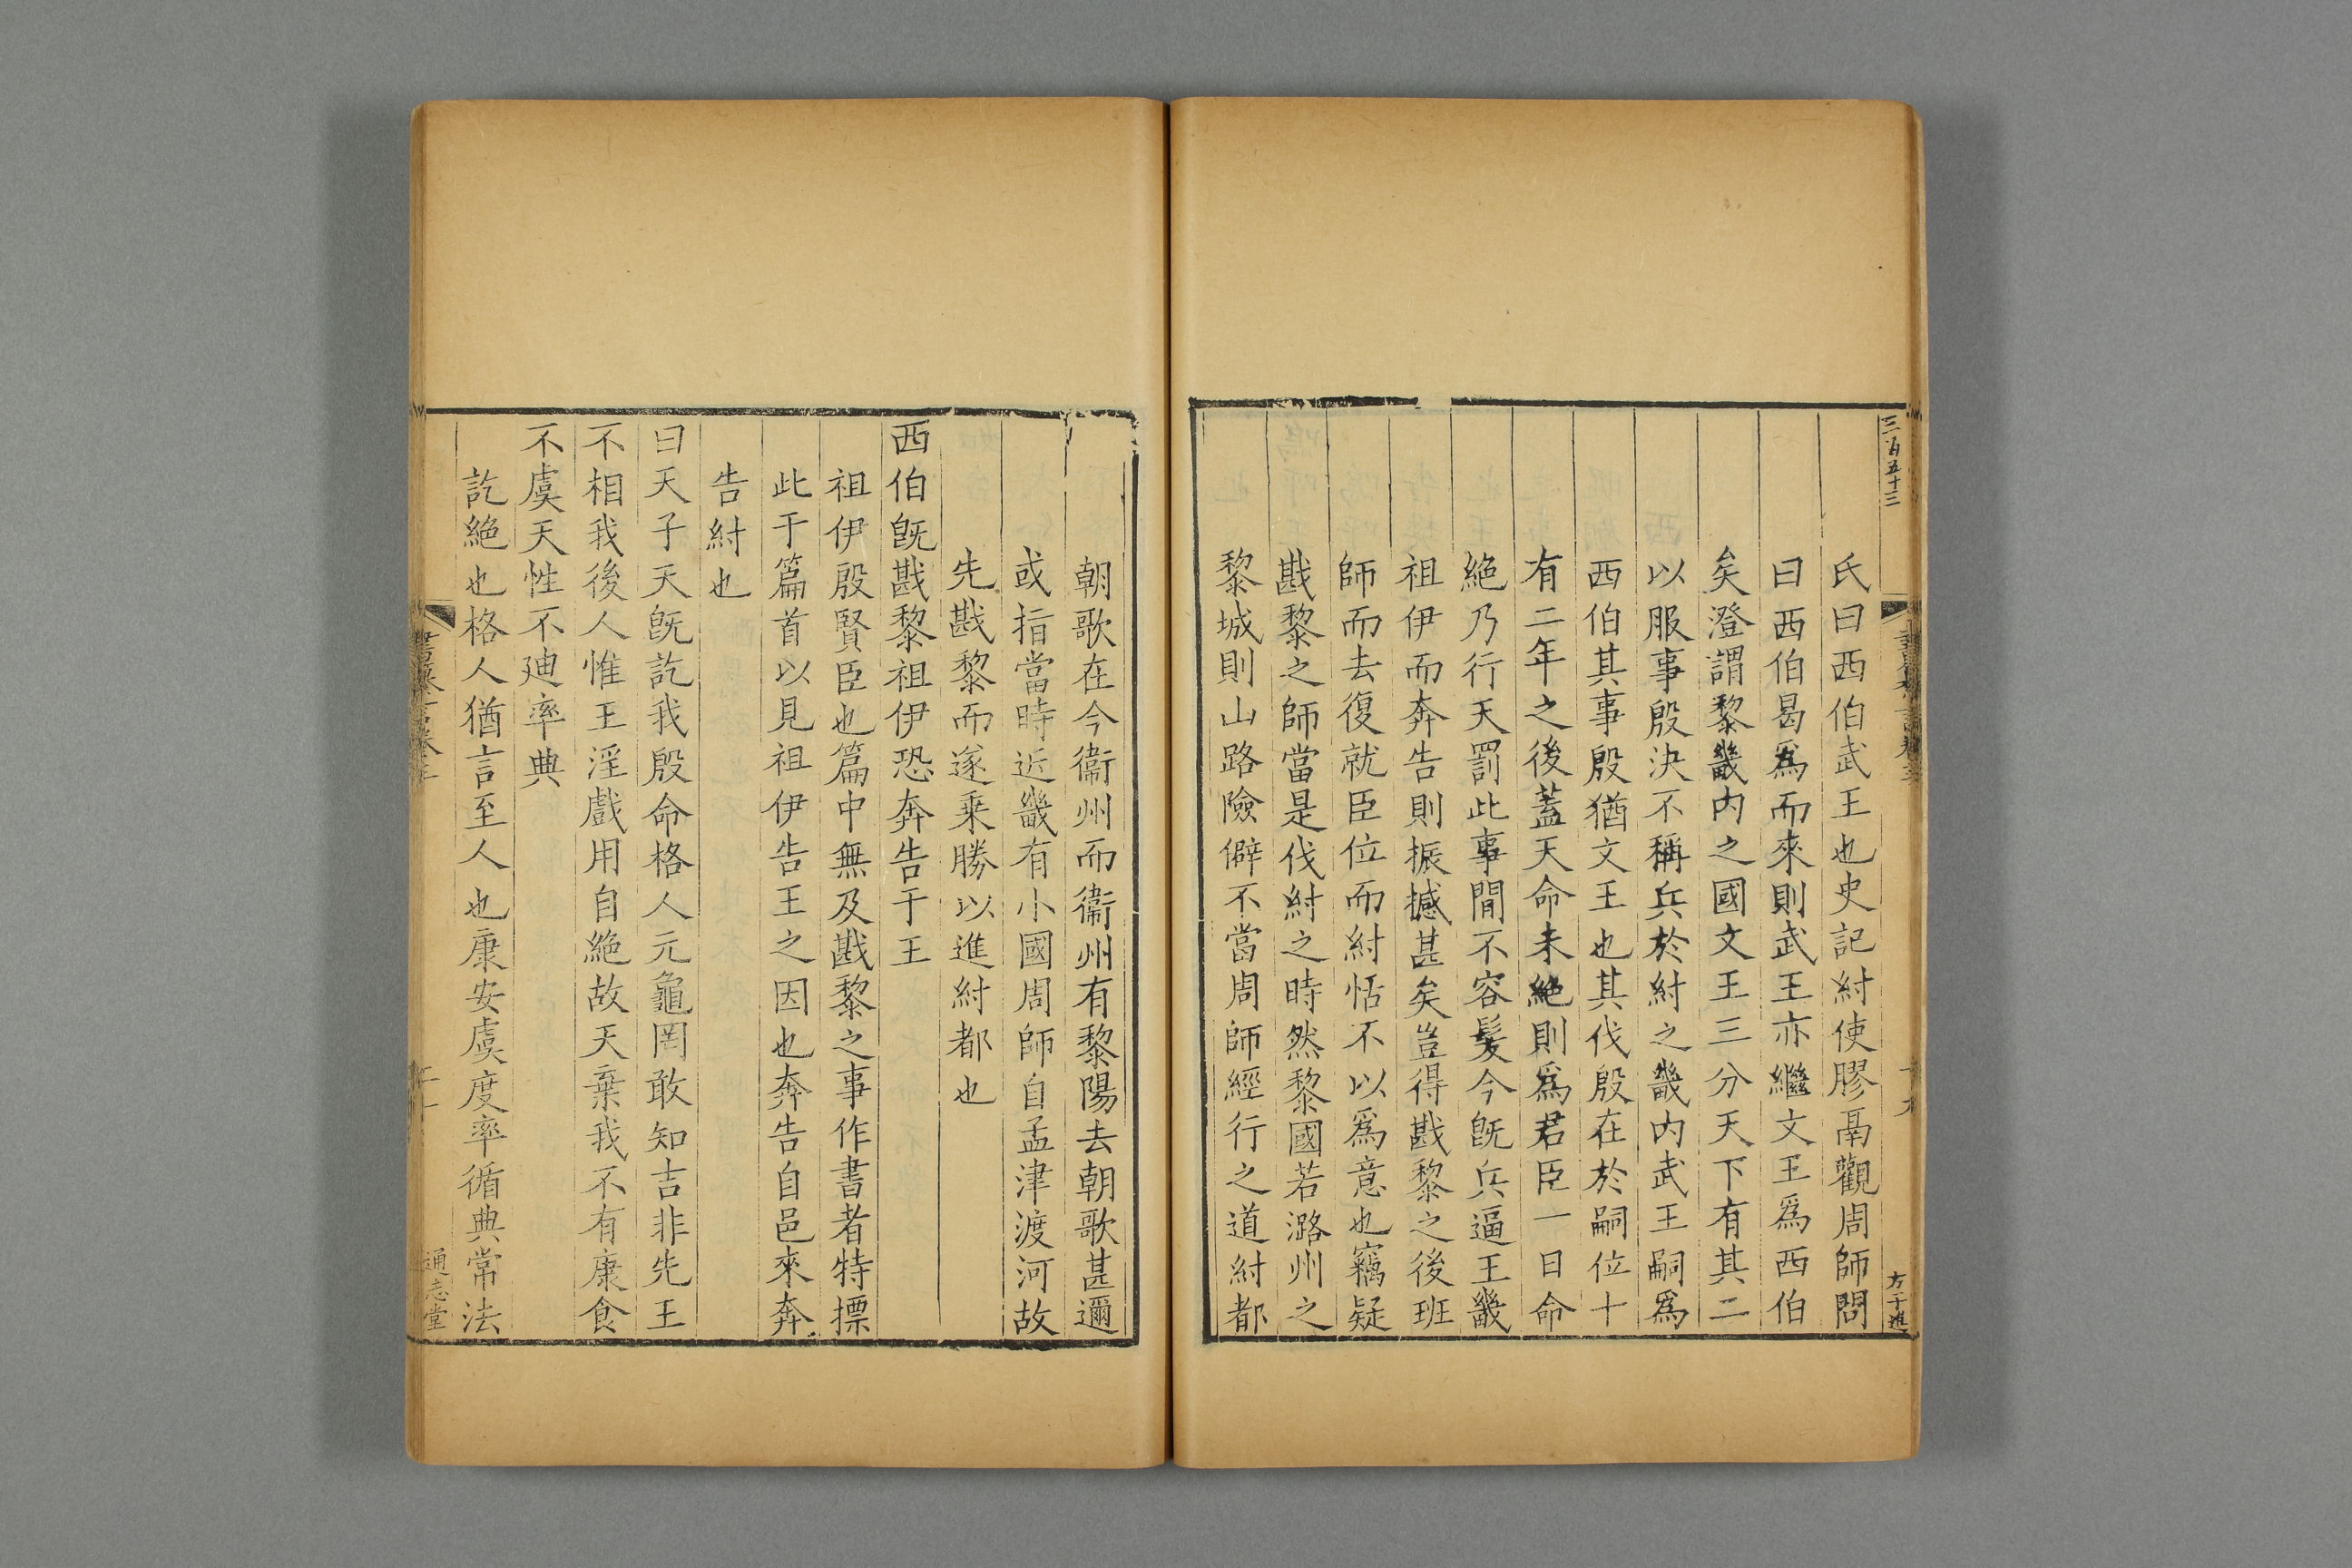 三百五十三
方子進
氏曰西伯武王也史記紂使膠鬲觀周師問
曰西伯曷爲而來則武王亦繼文王爲西伯
矣澄謂黎畿内之國文王三分天下有其二
以服事殷決不稱兵於紂之畿内武王嗣爲
西伯其事殷猶文王也其伐殷在於嗣位十
有二年之後蓋天命未絶則爲君臣一日命
絶乃行天罰此事間不容髮今旣兵逼王畿
祖伊而奔告則振撼甚矣豈得戡黎之後班
師而去復就臣位而紂恬不以爲意也竊疑
戡黎之師當是伐紂之時然黎國若潞州之
黎城則山路險僻不當周師經行之道紂都
朝歌在今衞州而衞州有黎陽去朝歌甚邇
或指當時近畿有小國周師自孟津渡河故
先戡黎而遂乘勝以進紂都也
西伯旣戡黎祖伊恐奔告于王
祖伊殷賢臣也篇中無及戡黎之事作書者特摽
此于篇首以見祖伊告王之因也奔告自邑來奔
告紂也
曰天子天旣訖我殷命格人元龜罔敢知吉非先王
不相我後人惟王淫戲用自絶故天棄我不有康食
不虞天性不迪率典
訖絶也格人猶言至人也康安虞度率循典常法
通志堂